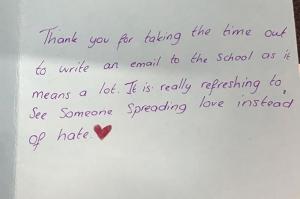 Thank you for taking the time out
to write an email to the school as it
means a lot. It is really refreshing to
see someone spreading love instead
of hate.